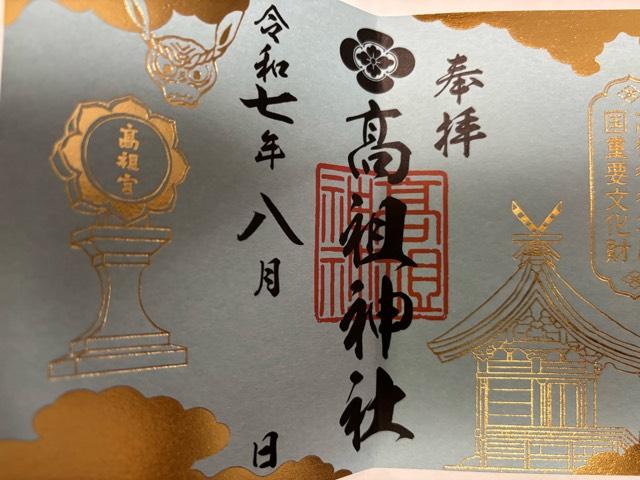 奉拝
髙祖神社
髙祖神社
令和七年八月 日
髙祖宮
国重要文化財